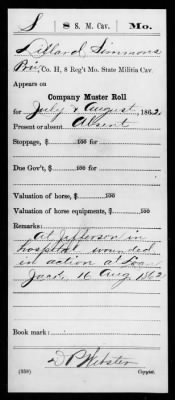 S 8 S. M. Cav. Mo.
Lillard Simmons
Priv., Co. H, 8 Reg't Mo. State Militia Cav.
Appears on
Company Muster Roll
for July & August, 1862.
Present or absent Absent
Stoppage, $ 100 for
Due Gov't, $ 100 for
Valuation of horse, $ 100
Valuation of horse equipments, $ 100
Remarks:
At Jefferson in
hospital wounded
in action at Lone
Jack 16 Aug. 1862
Book mark:
D P Webster
(358) Copyist.